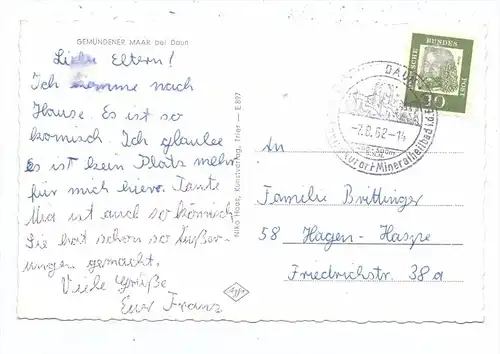 GEMÜNDENER MAAR bei Daun
Liebe Eltern!
Ich komme nach
Hause. Es ist so
komisch. Ich glaube
es ist kein Platz mehr
für mich hier. Tante
Mia ist auch so komisch
Sie hat schon so Äußer-
ungen gemacht.
Viele Grüße
Euer Franz
Nikla Haas, Kunstverlag, Trier — E 897
DEUTSCHE BUNDESPOST
10
DAUN
-7.8.62-14
Kurort-Mineralheilbad i.d. Eifel
An
Familie Brittinger
58 Hagen-Haspe
Friedrichstr. 38a